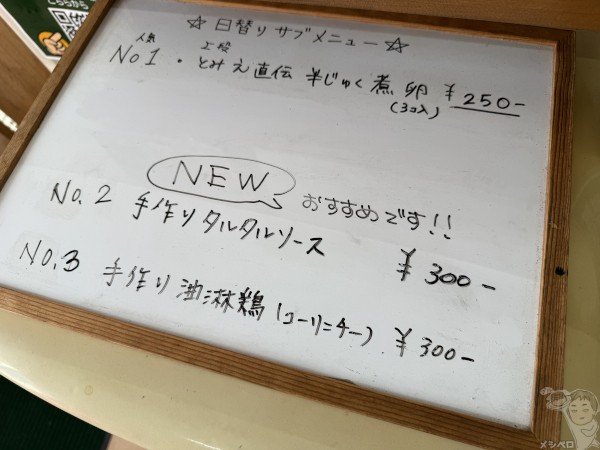 ☆ 日替り サブメニュー ☆
人気
No1. とみえ直伝 半じゅく煮卵 ¥250-
(3コ入)
NEW おすすめです!!
No.2 手作りタルタルソース ¥300-
No.3 手作り油淋鶏(ユーリンチー) ¥300-
メシペロ